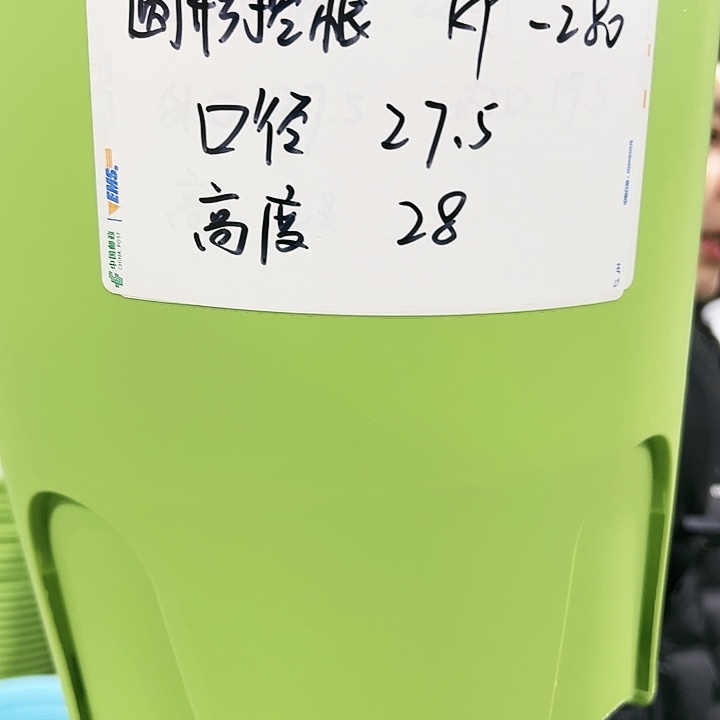 圆形控根 KP-280
口径 27.5
高度 28
EMS
中国邮政
CHINA POST